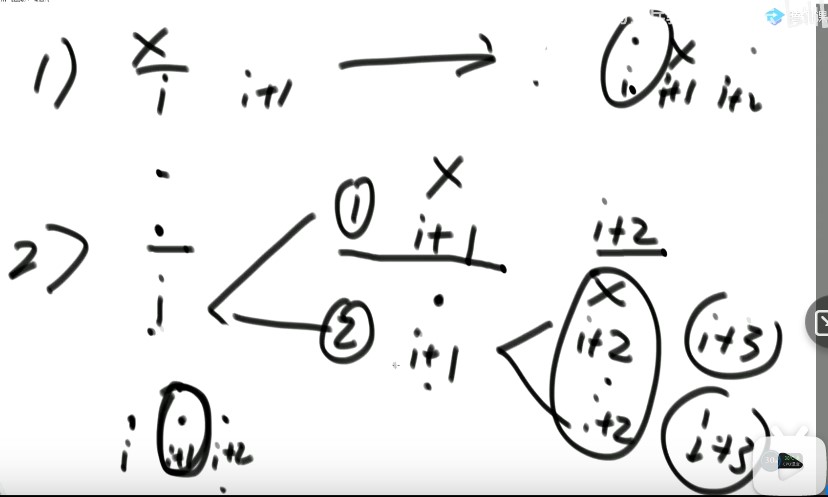 1) x i i+1 → i x i+1 i+2
2) i ① x i+1 i+2
② i+1 x i+2 i+3
i+2 i+3
i i+1 i+2